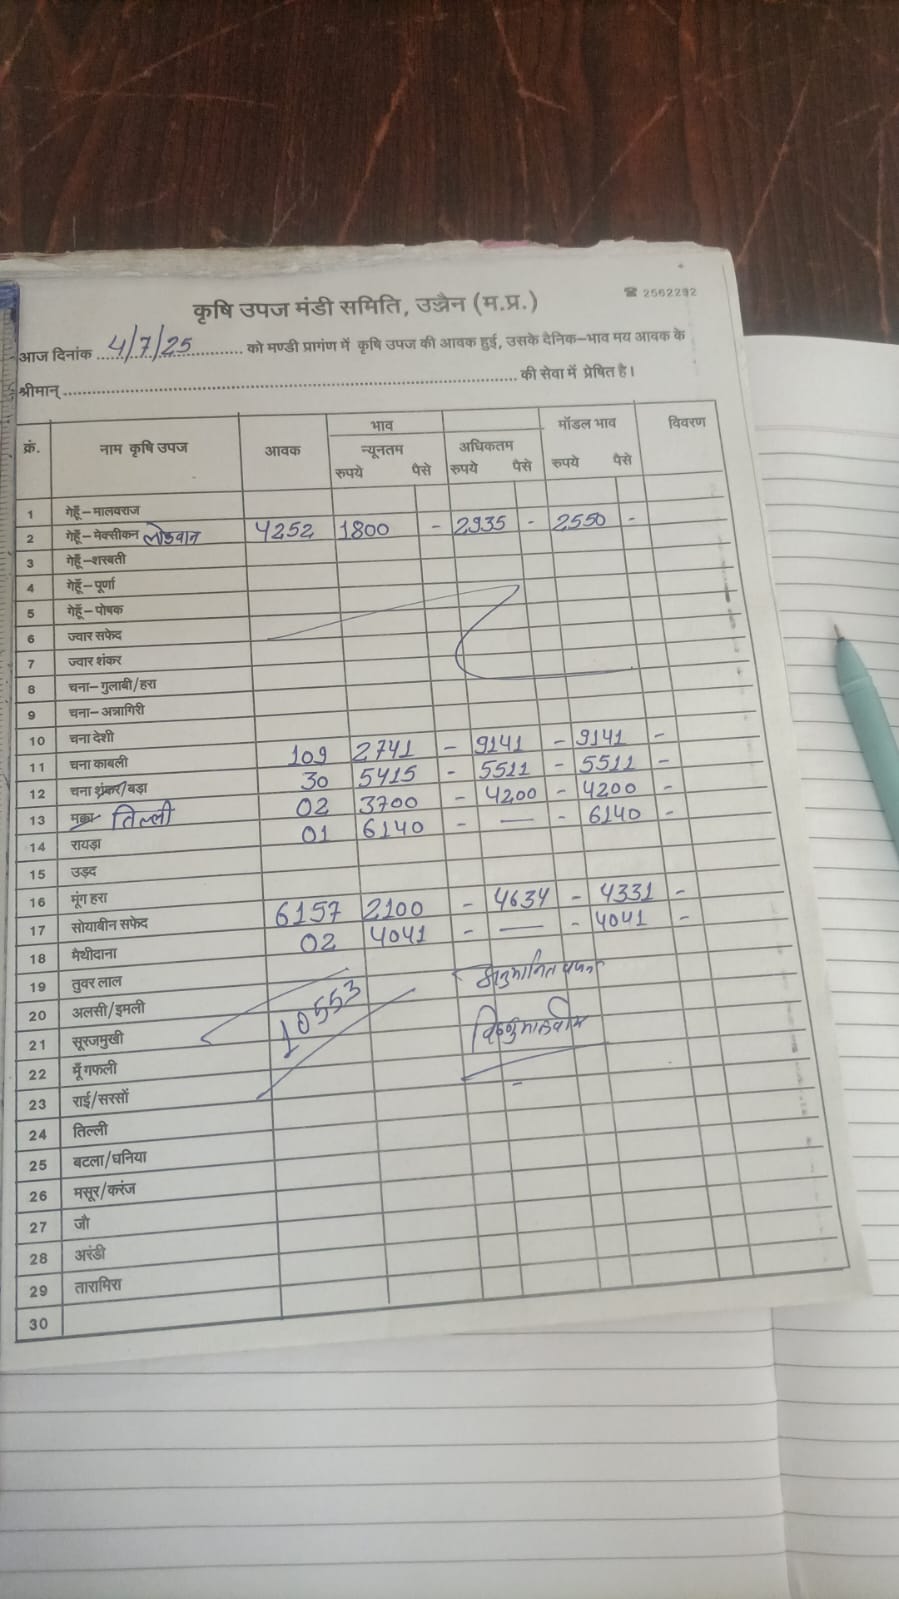 कृषि उपज मंडी समिति, उज्जैन (म.प्र.) ☎ 2562292
आज दिनांक 4/7/25 को मण्डी प्रागंण में कृषि उपज की आवक हुई, उसके दैनिक–भाव मय आवक के
श्रीमान् की सेवा में प्रेषित है।
भाव मॉडल भाव विवरण
क्रं. नाम कृषि उपज आवक न्यूनतम अधिकतम
रुपये पैसे रुपये पैसे रुपये पैसे
1 गेहूँ–मालवराज
2 गेहूँ–मेक्सीकन लोकवान 4252 1800 - 2935 - 2550 -
3 गेहूँ–शरबती
4 गेहूँ–पूर्णा
5 गेहूँ–पोषक
6 ज्वार सफेद
7 ज्वार शंकर
8 चना–गुलाबी/हरा
9 चना–अन्नागिरी
10 चना देशी
11 चना काबली 109 2741 - 9141 - 9141 -
12 चना शंकर/बड़ा 30 5415 - 5511 - 5511 -
13 मक्का तिल्ली 02 3700 - 4200 - 4200 -
14 रायड़ा 01 6140 - — - 6140 -
15 उड़द
16 मूंग हरा
17 सोयाबीन सफेद 6157 2100 - 4634 - 4331 -
18 मैथीदाना 02 4041 - — - 4041 -
19 तुवर लाल
20 अलसी/इमली 10553
21 सूरजमुखी
22 मूँगफली
23 राई/सरसों
24 तिल्ली
25 बटला/धनिया
26 मसूर/करंज
27 जौ
28 अरंडी
29 तारामिरा
30